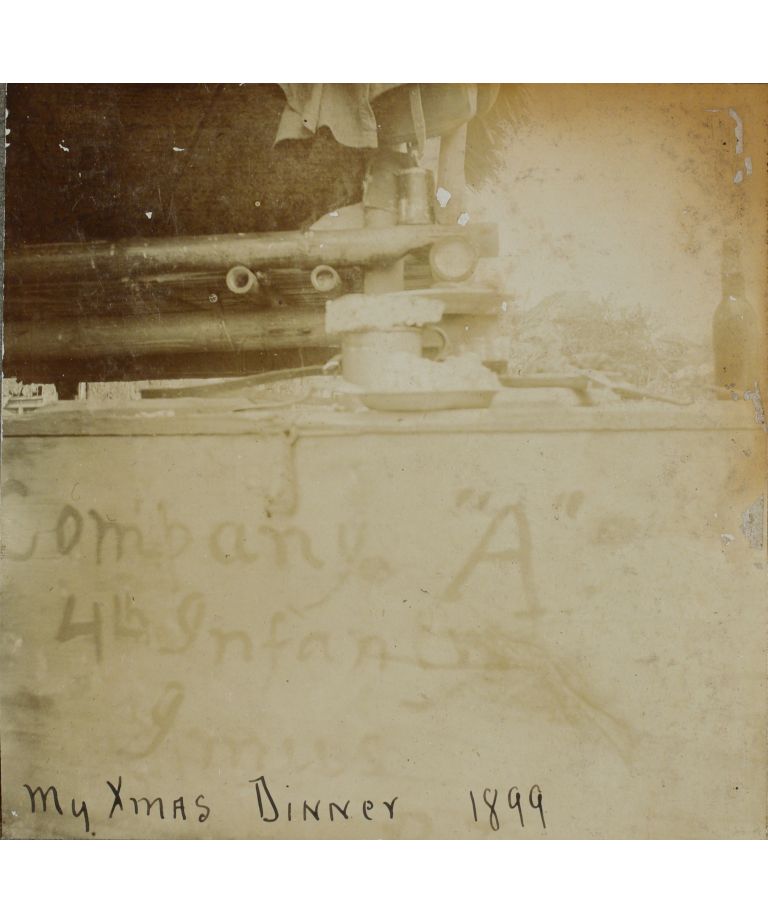 Company "A"
4th Infantry
Imus
My Xmas Dinner 1899